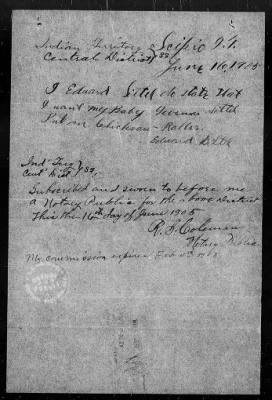 Indian Territory } SS. Scipio I.T.
Central District
June 16, 1905
I Edward do state that
I want my Baby
Put on Chickasaw Roll.
Edward
Ind. Ter }
Cent. Dist. } SS.
Subscribed and sworn to before me
a Notary Public for the above district
This the 16th day of June 1905
R. Coleman
Notary Public
My commission expires Feb